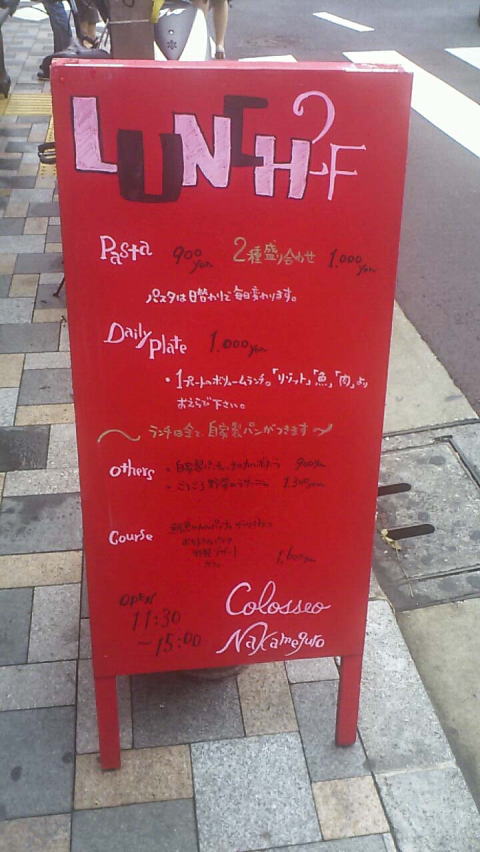 LUNCH 2F
Pasta 900yen 2種盛り合わせ 1.000yen
パスタは日替わりで毎日変わります。
Daily Plate 1.000yen
・1プレートのボリュームランチ。「リゾット」「魚」「肉」より
おえらび下さい。
ランチは全て、自家製パンがつきます
Others ・自家製 900yen
・ごろごろ野菜の
Course
1,600yen
OPEN
11:30
~15:00
Colosseo
Nakameguro